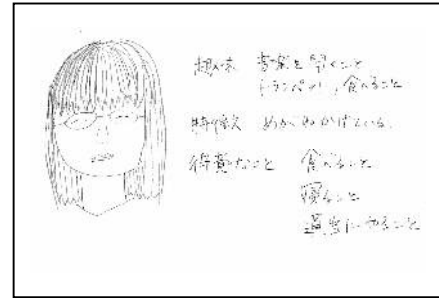 趣味 音楽を聞くこと
トランペット、食べること
特徴 めがねかけている。
得意なこと 食べること
寝ること
適当にやること